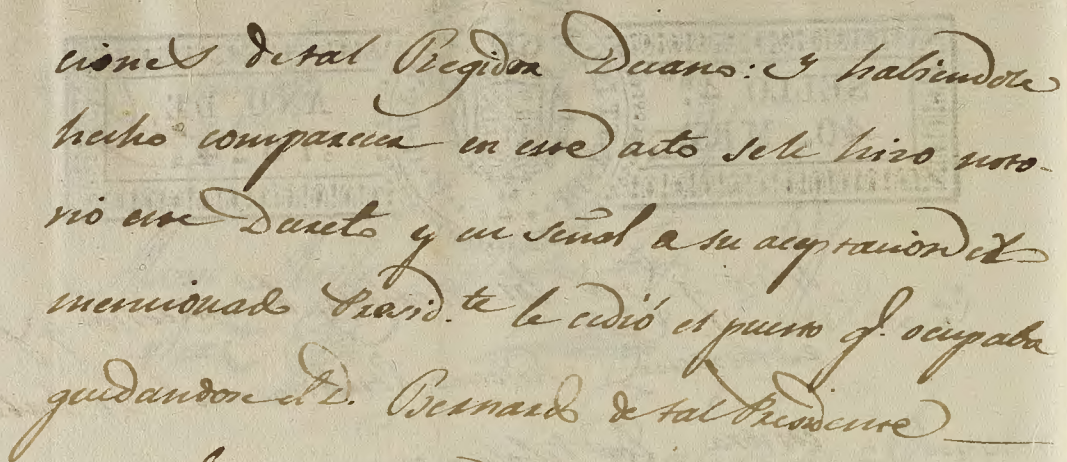 ciones de tal Regidor Decano: y habiendose
hecho comparecer en este acto se le hizo noto-
rio este Decreto y en señal de su aceptacion el
mencionado Presid.te le cedió el puesto q. ocupaba
quedandose el D. Bernardo de tal Presidente